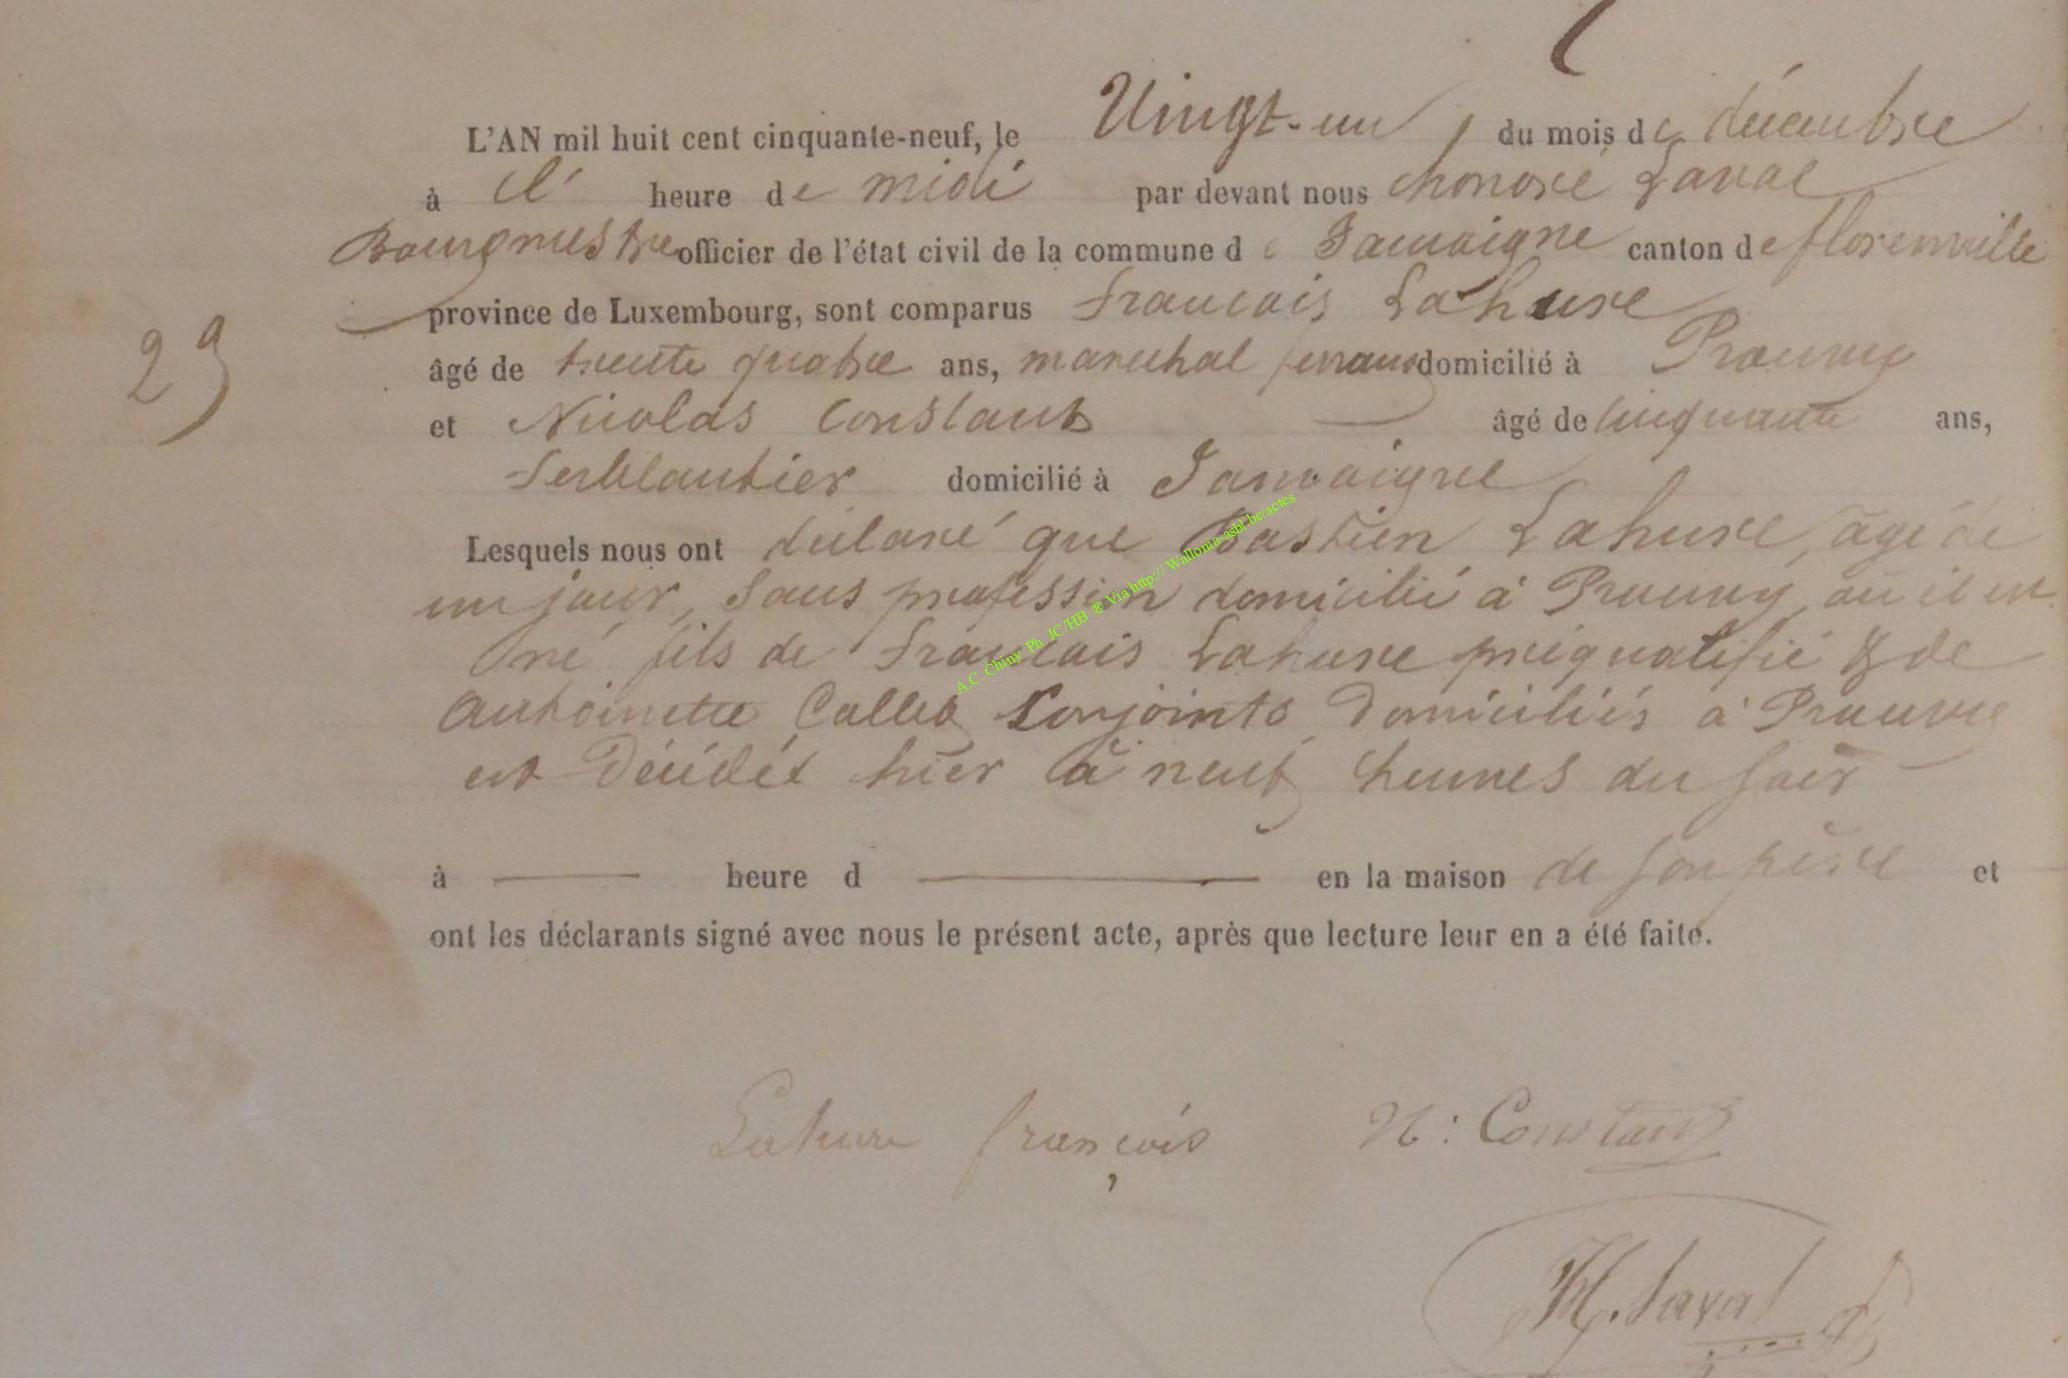 L'AN mil huit cent cinquante-neuf, le Vingt-un du mois de décembre
à l' heure de midi par devant nous honoré Laval
Bourgmestre officier de l'état civil de la commune de Jamoigne canton de florenville
province de Luxembourg, sont comparus francois Lahure
âgé de trente quatre ans, marechal ferrant domicilié à Prouvy
29
et Nicolas Constant âgé de cinquante ans,
ferblantier domicilié à Jamoigne
Lesquels nous ont déclaré que Bastien Lahure, agé de
un jour, sans profession domicilié à Prouvy, où il est
né fils de francois Lahure préqualifié & de
Antoinette Collet Conjoints Domiciliés à Prouvy
est Décédét hier à neuf heures du soir
à heure d en la maison de son père et
ont les déclarants signé avec nous le présent acte, après que lecture leur en a été faite.
A.C. Chiny Ph JC/HB ® Via http:// Wallonia-asbl.be/actes
Lahure françois N: Constant
H. Laval